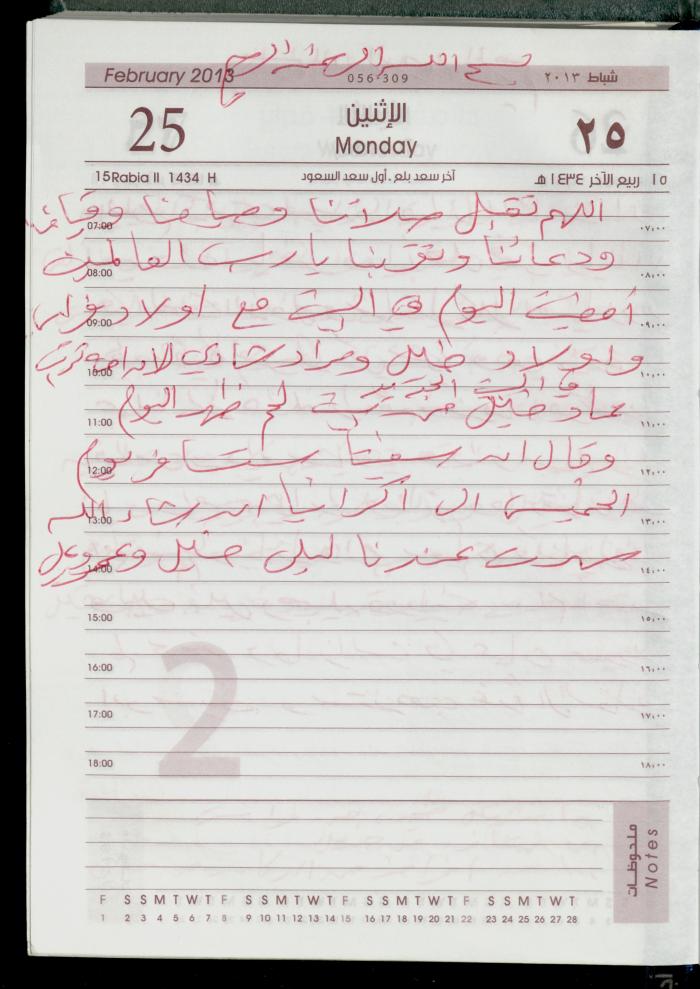 بسم الله الرحمن الرحيم
February 2013 056-309 شباط ٢٠١٣
25 الإثنين ٢٥
Monday
15 Rabia II 1434 H آخر سعد بلع . أول سعد السعود ١٥ ربيع الآخر ١٤٣٤ هـ
اللهم تقبل صلاتنا وصيامنا وقيامنا
07:00 ٠٧،٠٠
ودعائنا وتقربنا يا رب العالمين
08:00 ٠٨،٠٠
أمضيت اليوم في البيت مع اولاد
09:00 ٠٩،٠٠
واولاد خليل ومراد شادي
10:00 ١٠،٠٠
في البيت الجديد
عاد خليل من بيت لحم ظهر اليوم
11:00 ١١،٠٠
وقال انه ستسافر يوم
12:00 ١٢،٠٠
الخميس الى اكرانيا ان شاء الله
13:00 ١٣،٠٠
سهرت عندنا ليلى خليل
14:00 ١٤،٠٠
15:00 ١٥،٠٠
16:00 ١٦،٠٠
17:00 ١٧،٠٠
18:00 ١٨،٠٠
2
ملحوظات
Notes
F S S M T W T F S S M T W T F S S M T W T F S S M T W T
1 2 3 4 5 6 7 8 9 10 11 12 13 14 15 16 17 18 19 20 21 22 23 24 25 26 27 28